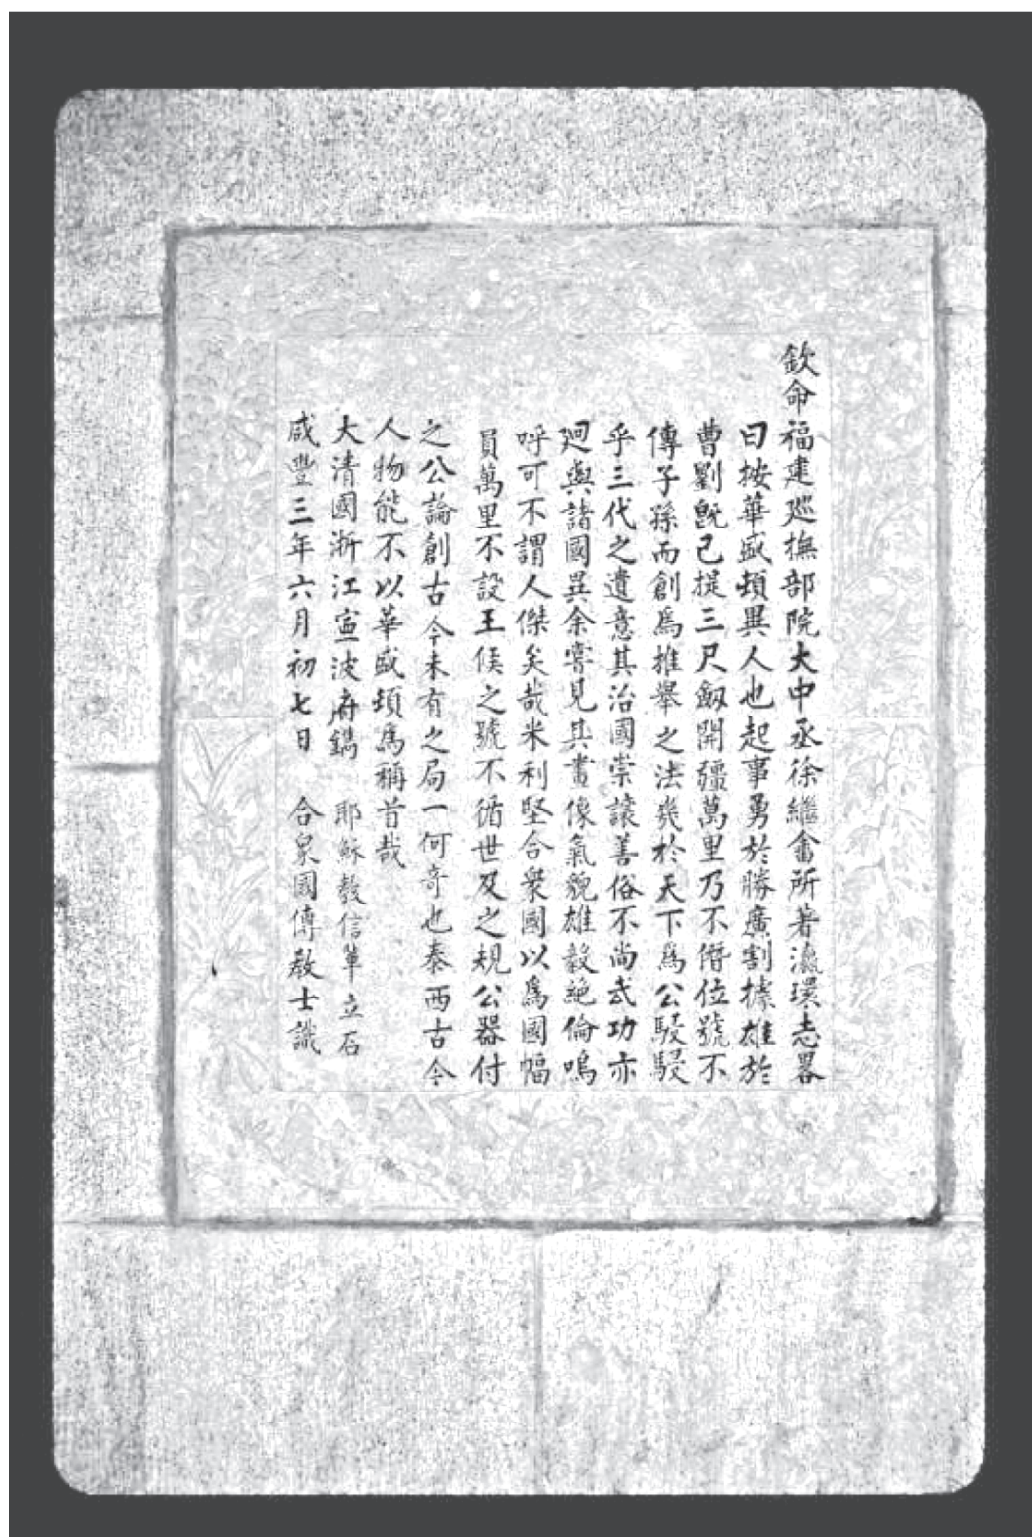 欽命福建廵撫部院大中丞徐繼畬所著瀛環志畧
曰按華盛頓異人也起事勇於勝廣割據雄於
曹劉旣已提三尺劔開疆萬里乃不僭位號不
傳子孫而創爲推舉之法幾於天下爲公駸駸
乎三代之遺意其治國崇讓善俗不尚武功亦
迥與諸國異余嘗見其畫像氣貌雄毅絕倫嗚
呼可不謂人傑矣哉米利堅合衆國以爲國幅
員萬里不設王侯之號不循世及之規公器付
之公論創古今未有之局一何奇也泰西古今
人物能不以華盛頓爲稱首哉
大清國浙江寧波府鐫 耶穌教信輩立石
咸豐三年六月初七日 合衆國傳教士識